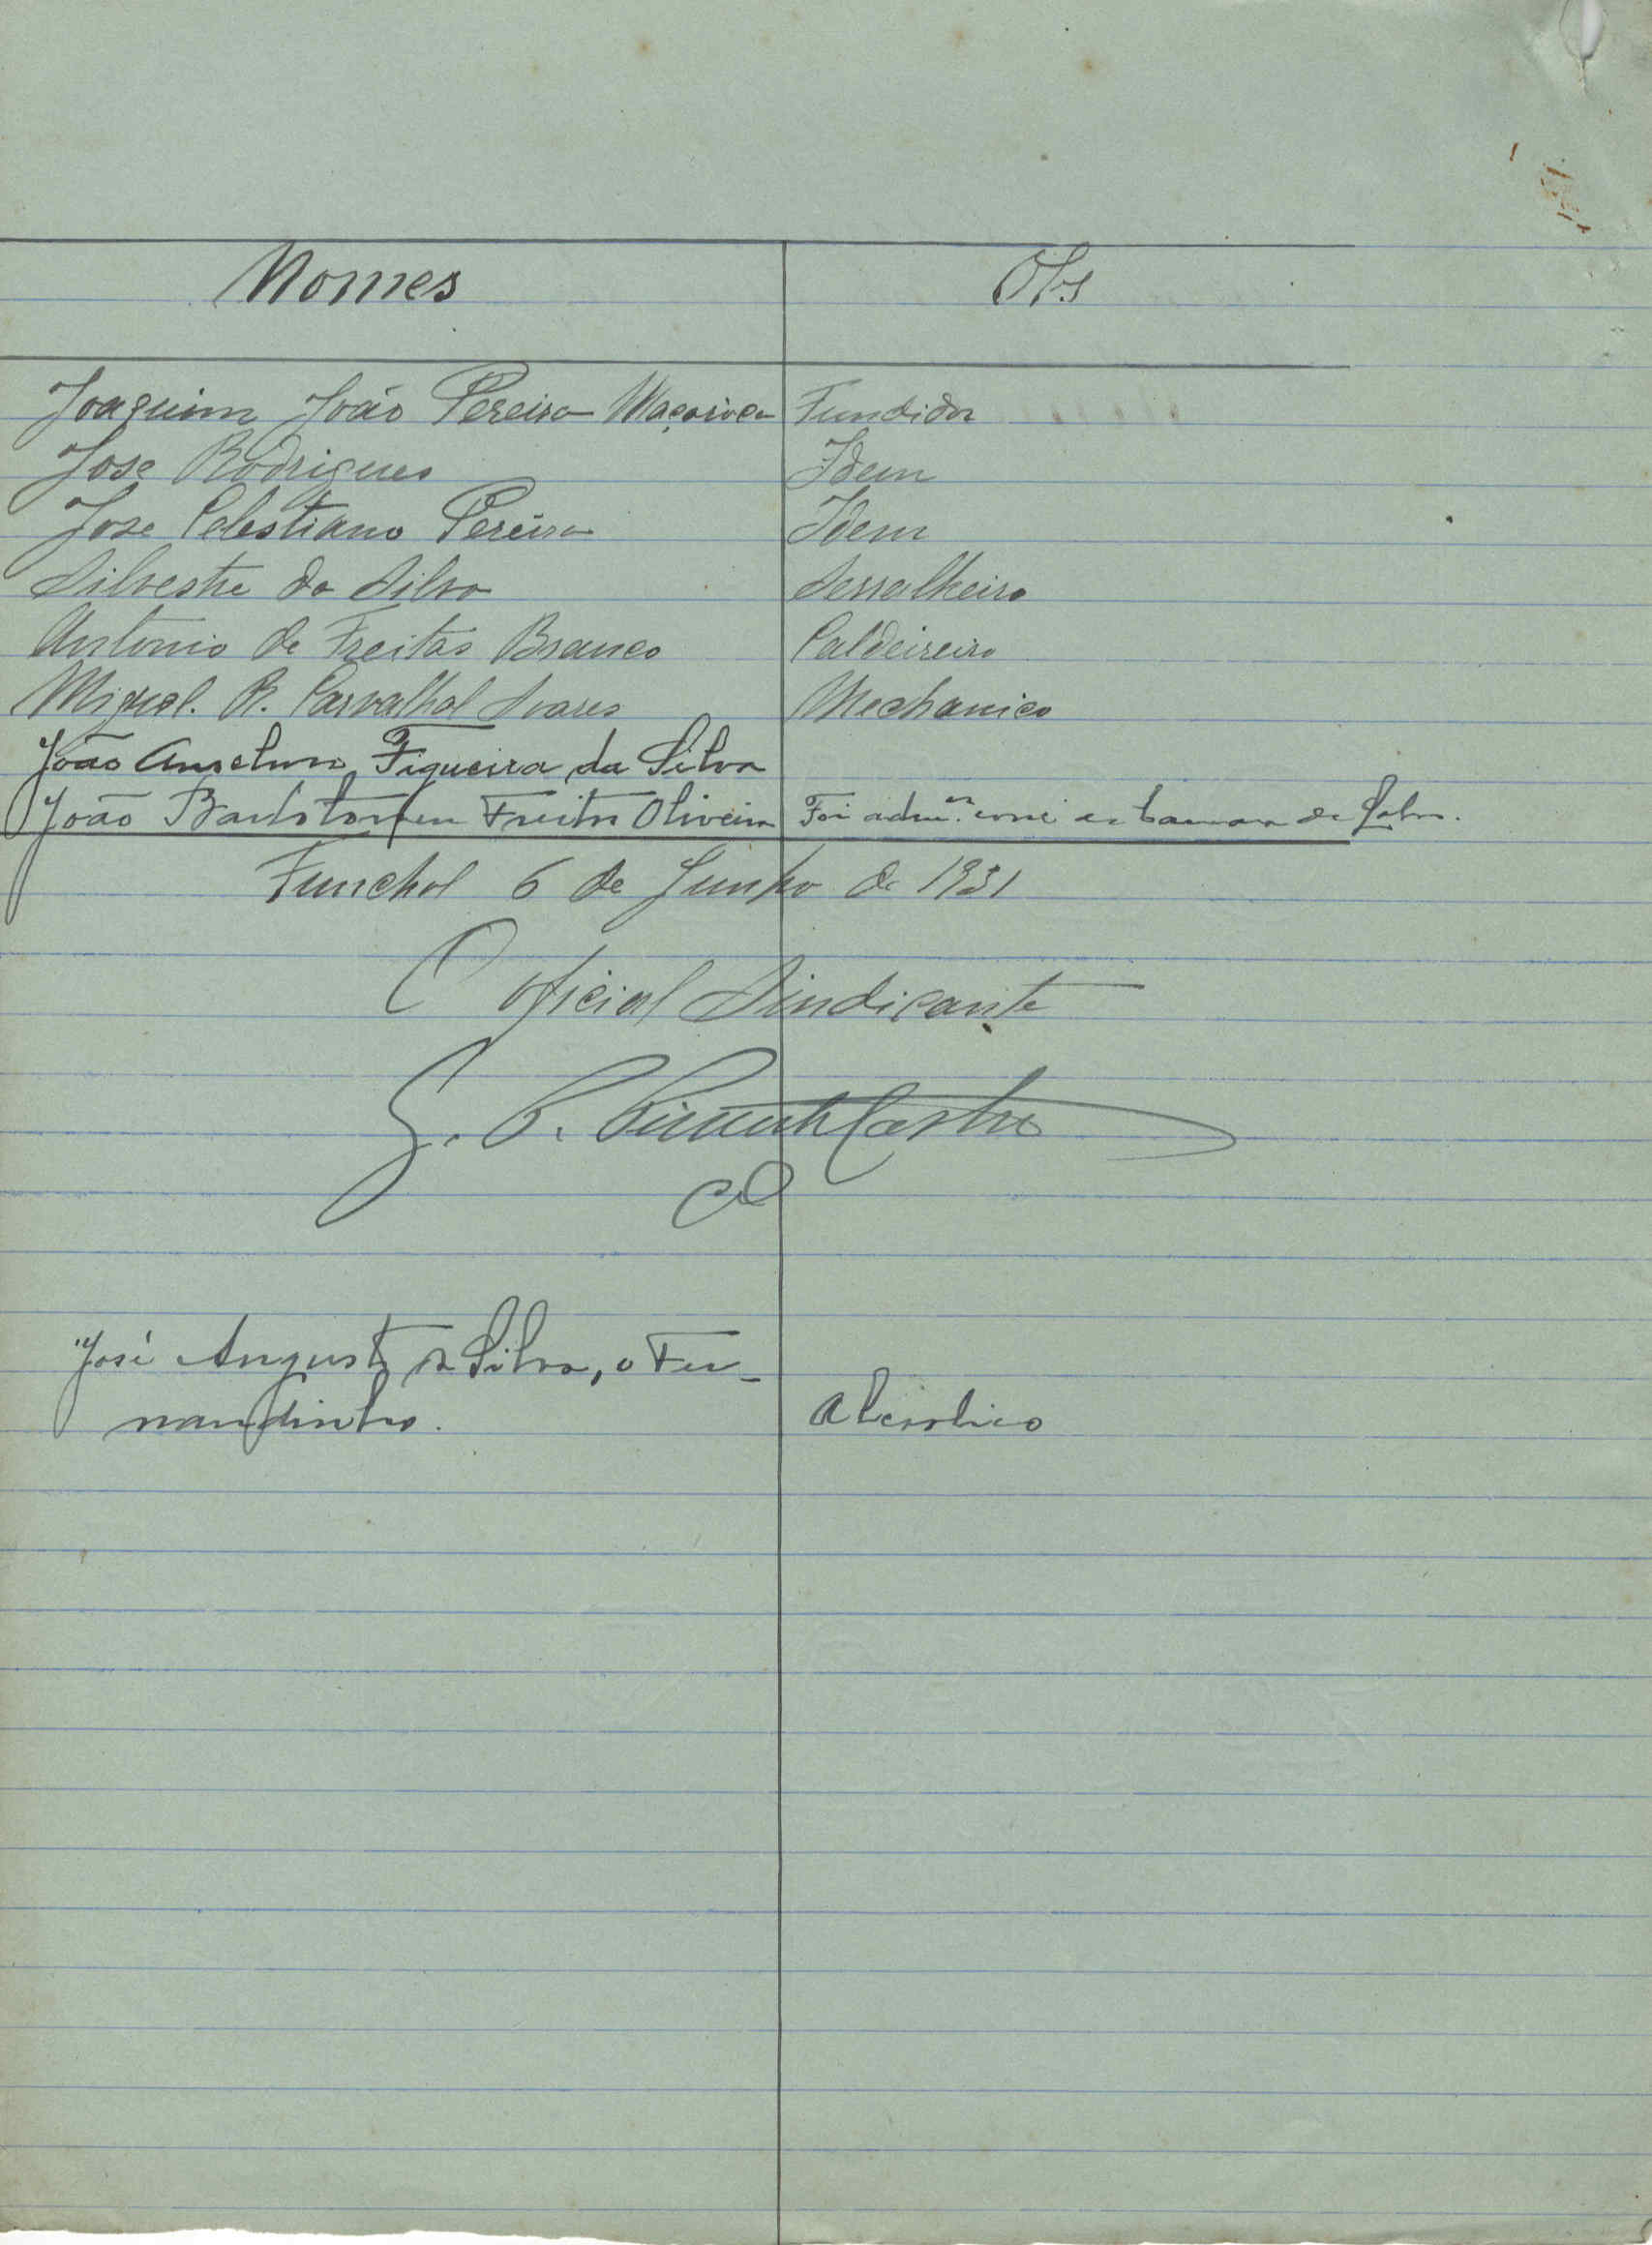 Nomes Obs
Joaquim João Pereira Maçaroca Fundidor
Jose Rodrigues Idem
Jose Celestiano Pereira Idem
Silvestre da Silva Serralheiro
Antonio de Freitas Branco Caldeireiro
Miguel. R. Carvalhal Soares Mechanico
João Anselmo Figueira da Silva
João Freitas Oliveira Foi adm.or de Camara de Lobos.
Funchal 6 de Junho de 1931
O oficial Sindicante
Castro
José Augusto da Silva, o Fer-
nandinho. Alcoolico